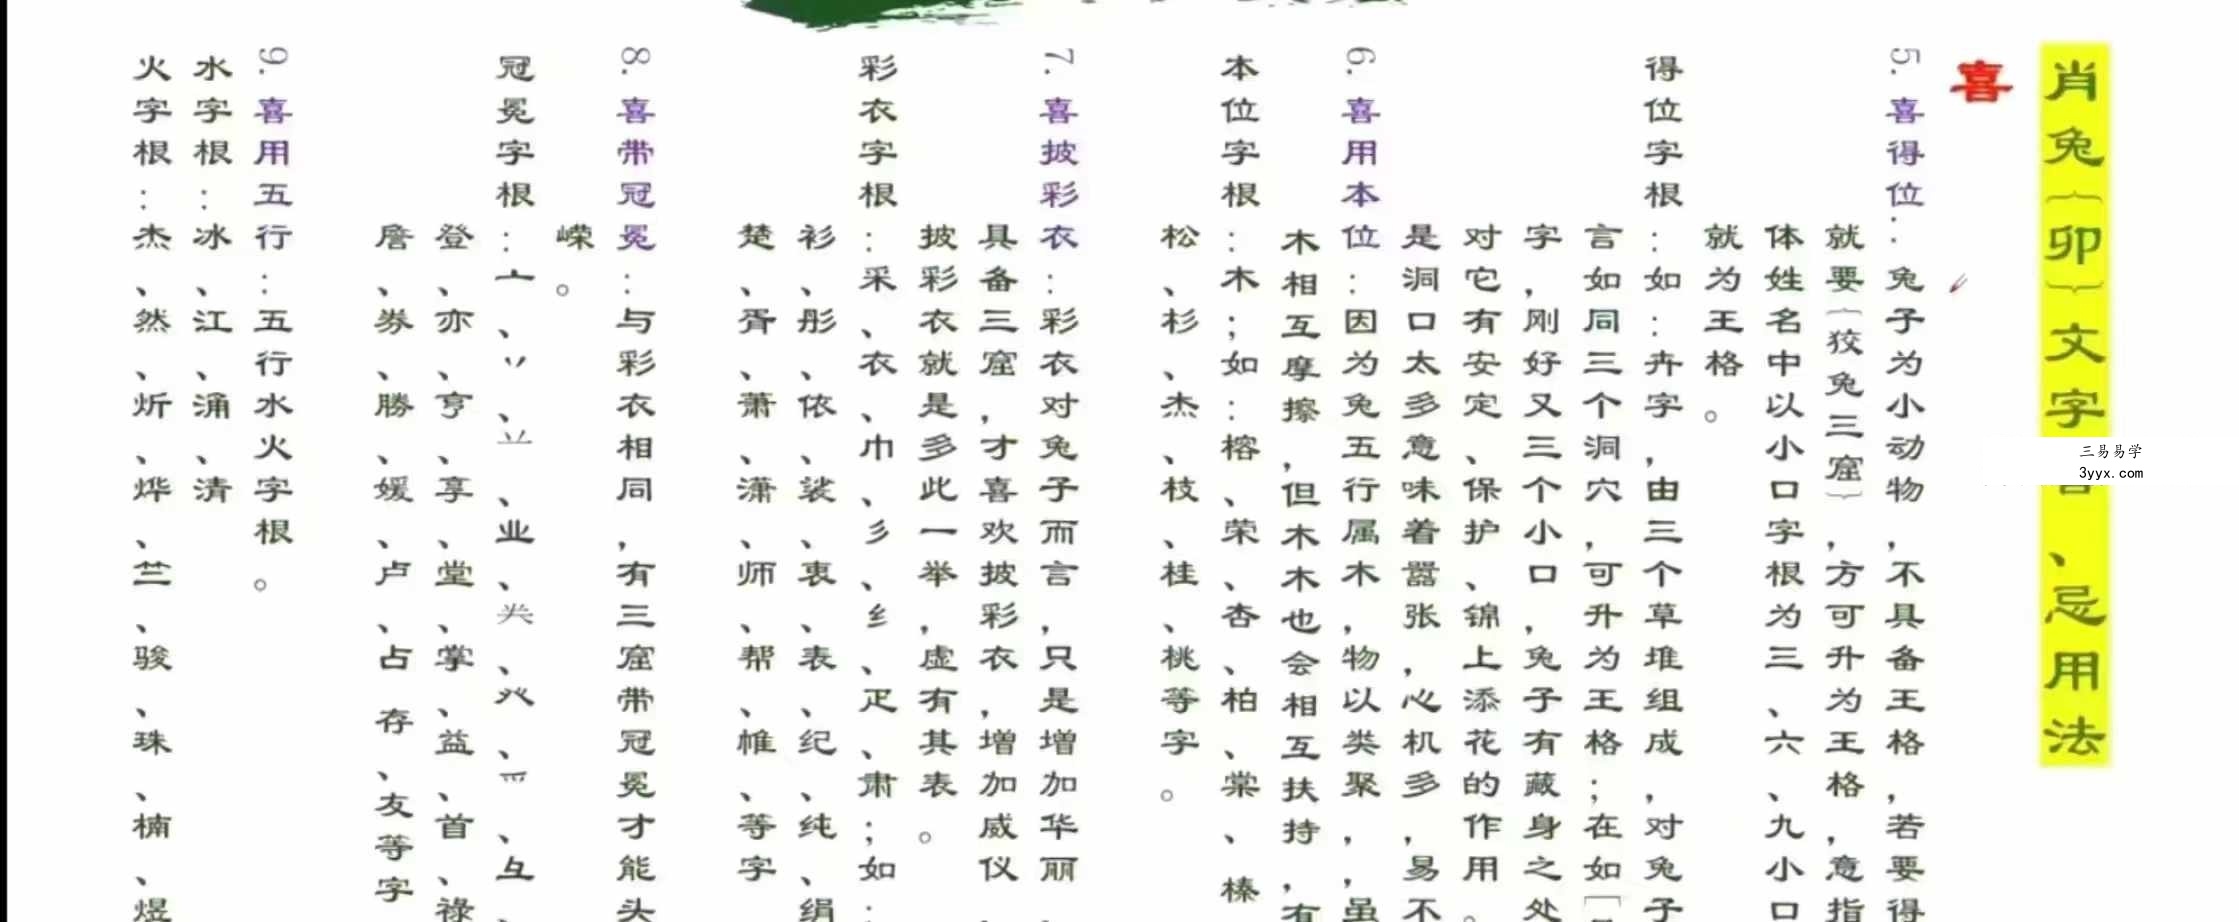 肖兔︵卯︶文字
、忌用法
喜
5. 喜得位：兔子为小动物，不具备王格，若要得
就要︵狡兔三窟︶，方可升为王格，意指
体姓名中以小口字根为三、六、九小口
就为王格。
得位字根：如：卉字，由三个草堆组成，对兔子
言如同三个洞穴，可升为王格；在如
字，刚好又三个小口，兔子有藏身之处
对它有安定、保护、锦上添花的作用。
是洞口太多意味着嚣张，心机多，易不
6. 喜用本位：因为兔五行属木，物以类聚，虽
木相互摩擦，但木木也会相互扶持，有
本位字根：木；如：榕、荣、杏、柏、棠、榛
松、杉、杰、枝、桂、桃等字。
7. 喜披彩衣：彩衣对兔子而言，只是增加华丽
具备三窟，才喜欢披彩衣，增加威仪
披彩衣就是多此一举，虚有其表。
彩衣字根：采、衣、巾、彡、纟、疋、肃；如：
衫、彤、依、裟、衷、表、纪、纯、绢
楚、胥、萧、潇、师、帮、帷、等字
8. 喜带冠冕：与彩衣相同，有三窟带冠冕才能头
嵘。
冠冕字根：亠、丷、䒑、业、𠔉、癶、爫、彑、
登、亦、亨、享、堂、掌、益、首、祿
詹、券、勝、媛、卢、占存、友等字
9. 喜用五行：五行水火字根。
水字根：冰、江、涌、清
火字根：杰、然、炘、烨、竺、骏、珠、楠、煜
三易易学
3yyx.com